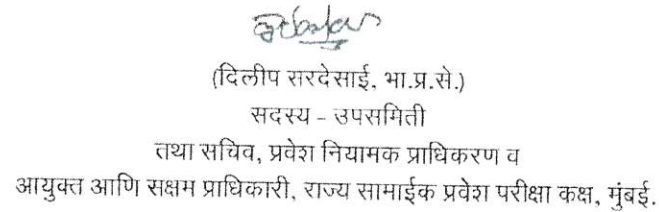 (दिलीप सरदेसाई, भा.प्र.से.)
सदस्य - उपसमिती
तथा सचिव, प्रवेश नियामक प्राधिकरण व
आयुक्त आणि सक्षम प्राधिकारी, राज्य सामाईक प्रवेश परीक्षा कक्ष, मुंबई.